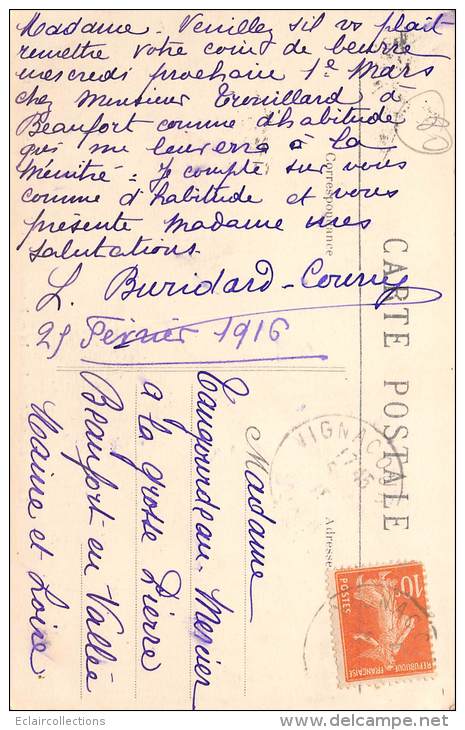 Madame - Veuillez s'il vs plaît
remettre votre coin de beurre
mercredi prochain 1er Mars
chez Monsieur Trouillard à
Beaufort comme d'habitude
qui me l'enverra à la
Ménitré - Je compte sur vous
comme d'habitude et vous
présente Madame mes
salutations.
L. Buridard-Courny
25 Février 1916
80
Correspondance
CARTE POSTALE
Adresse
Madame
Tangourdeau-Menier
à la grosse Pierre
Beaufort en Vallée
Maine et Loire
VIGNACO
10
POSTES
REPUBLIQUE FRANÇAISE
Eclaircollections
www.delcampe.net